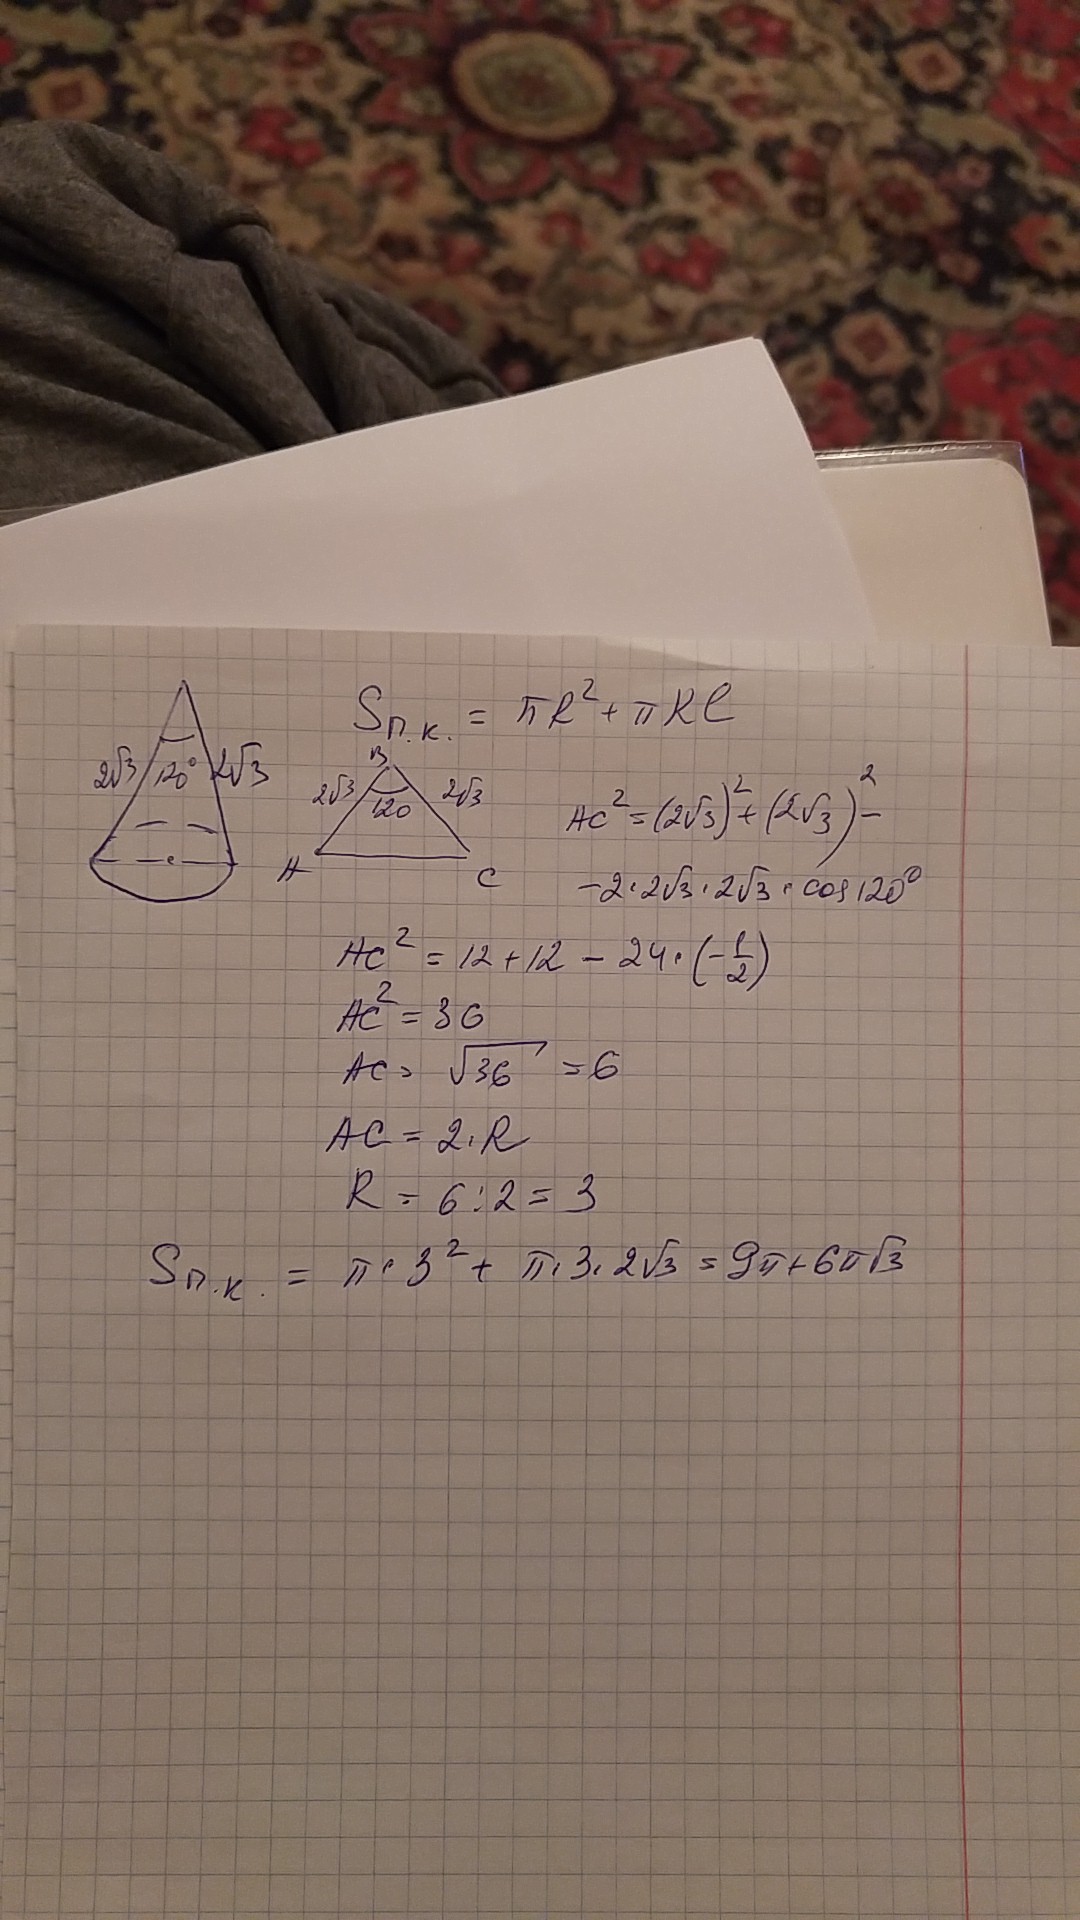 Sп.к. = πR² + πRl
2√3 120° 2√3
B
2√3 120 2√3
A C
AC² = (2√3)² + (2√3)² −
− 2 · 2√3 · 2√3 · cos 120°
AC² = 12 + 12 − 24 · (−1/2)
AC² = 36
AC = √36 = 6
AC = 2 · R
R = 6 : 2 = 3
Sп.к. = π · 3² + π · 3 · 2√3 = 9π + 6π√3